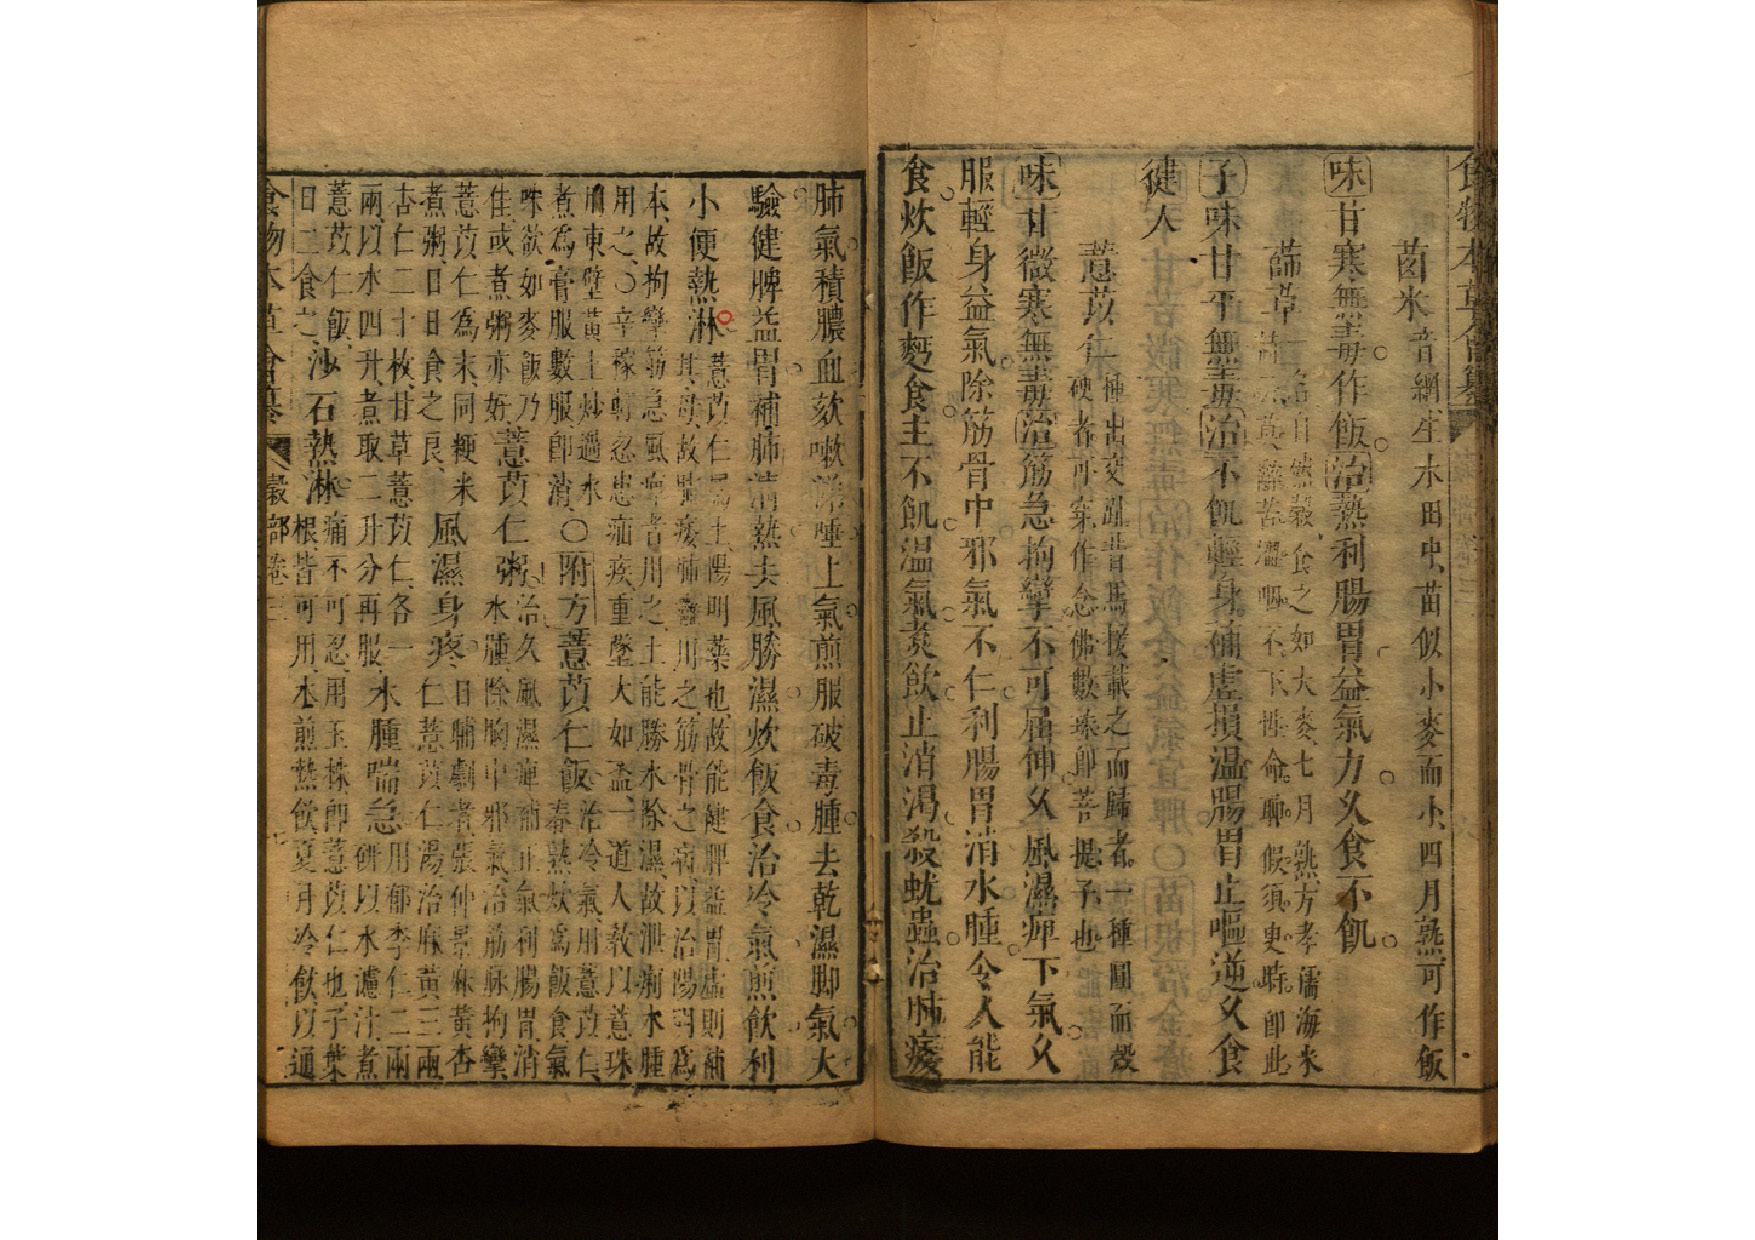 食物本草會纂
䓻米音網生水田中苗似小麥而小四月熟可作飯
味甘寒無毒作飯治熱利腸胃益氣力久食不飢
蒒草一名自然穀食之如大麥七月熟方孝孺海米
子味甘平無毒治不飢輕身補虛損溫腸胃止嘔逆久食
健人
薏苡仁一種出交趾昔馬援載之而歸者一種圓而殼
硬者可穿作念佛數珠即菩提子也
味甘微寒無毒治筋急拘攣不可屈伸久風濕痺下氣久
服輕身益氣除筋骨中邪氣不仁利腸胃消水腫令人能
食炊飯作麪食主不飢溫氣煮飲止消渴殺蚘蟲治肺痿
肺氣積膿血欬嗽涕唾上氣煎服破毒腫去乾濕脚氣大
驗健脾益胃補肺清熱去風勝濕炊飯食治冷氣煎飲利
小便熱淋薏苡仁屬土陽明藥也故能健脾益胃虛則補
其母故肺痿肺癰用之筋骨之病以治陽明為
本故拘攣筋急風痺者用之土能勝水除濕故泄痢水腫
用之○辛稼軒忽患疝疾重墜大如盃一道人教以薏珠
用東壁黃土炒過水
煮為膏服數服即消○附方薏苡仁飯治冷氣用薏苡仁
春熟炊為飯食氣
味欲如麥飯乃
佳或煮粥亦好薏苡仁粥治久風濕痺補正氣利腸胃消
水腫除胸中邪氣治筋脉拘攣
薏苡仁為末同粳米
煮粥日日食之良風濕身疼日晡劇者張仲景麻黃杏
仁薏苡仁湯治麻黃三兩
杏仁二十枚甘草薏苡仁各一
兩以水四升煮取二升分再服水腫喘急用郁李仁二兩
研以水濾汁煮
薏苡仁飯
日二食之沙石熱淋痛不可忍用玉秫即薏苡仁也子葉
根皆可用水煎熱飲夏月冷飲以通
食物本草會纂 穀部卷三